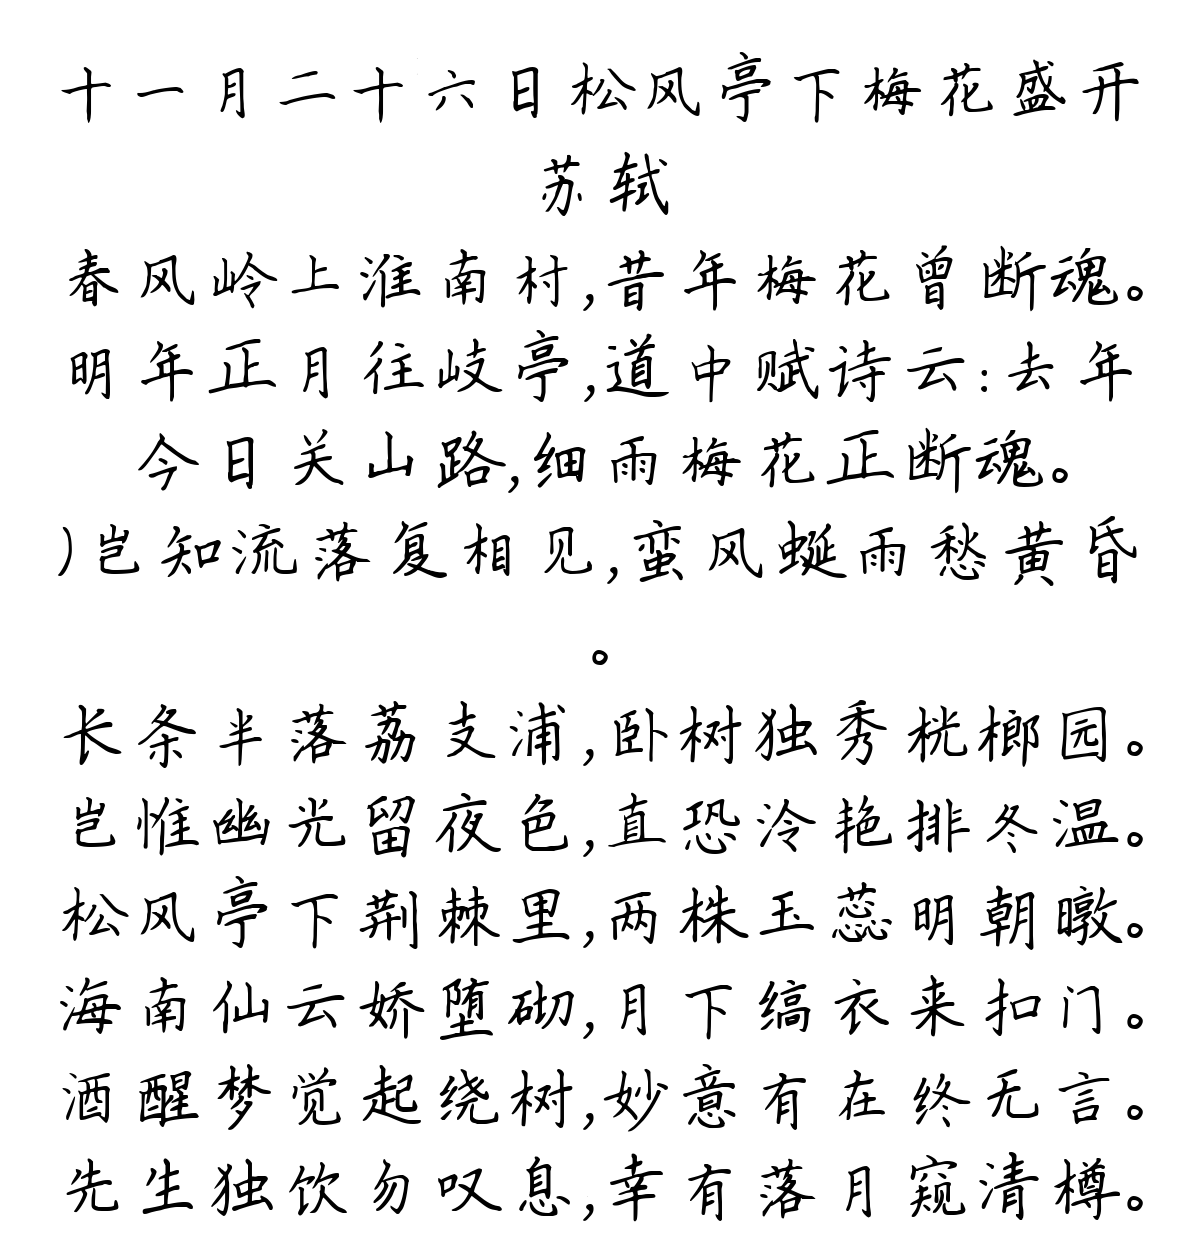 十一月二十六日松风亭下梅花盛开
苏轼
春风岭上淮南村,昔年梅花曾断魂。
明年正月往岐亭,道中赋诗云:去年
今日关山路,细雨梅花正断魂。
)岂知流落复相见,蛮风蜒雨愁黄昏
。
长条半落荔支浦,卧树独秀桄榔园。
岂惟幽光留夜色,直恐冷艳排冬温。
松风亭下荆棘里,两株玉蕊明朝暾。
海南仙云娇堕砌,月下缟衣来扣门。
酒醒梦觉起绕树,妙意有在终无言。
先生独饮勿叹息,幸有落月窥清樽。